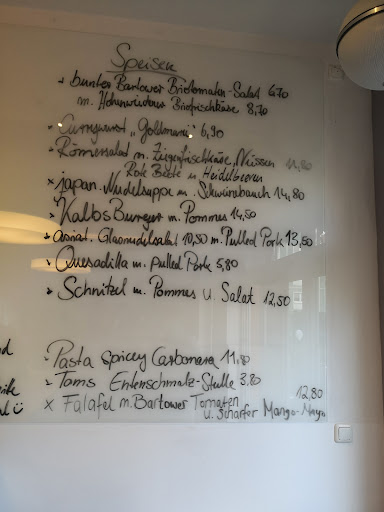 Speisen
bunter Bartower Biotomaten-Salat 6,70
m. Hohenwindener Biofrischkäse 8,70
Currywurst „Goldmarie“ 6,90
Römersalat m. Ziegenfrischkäse, Nüssen
Rote Bete u Heidelbeeren
x japan. Nudelsuppe m. Schweinebauch 14,80
Kalbs Burger m. Pommes 14,50
asiat. Glasnudelsalat 10,50 m. Pulled Pork 13,50
Quesadilla m. pulled Pork 5,80
Schnitzel m. Pommes u. Salat 12,50
Pasta spicey Carbonara 11,80
Toms Entenschmalz-Stulle 3,80
x Falafel m. Bartower Tomaten 12,80
u. scharfer Mango-Mayo